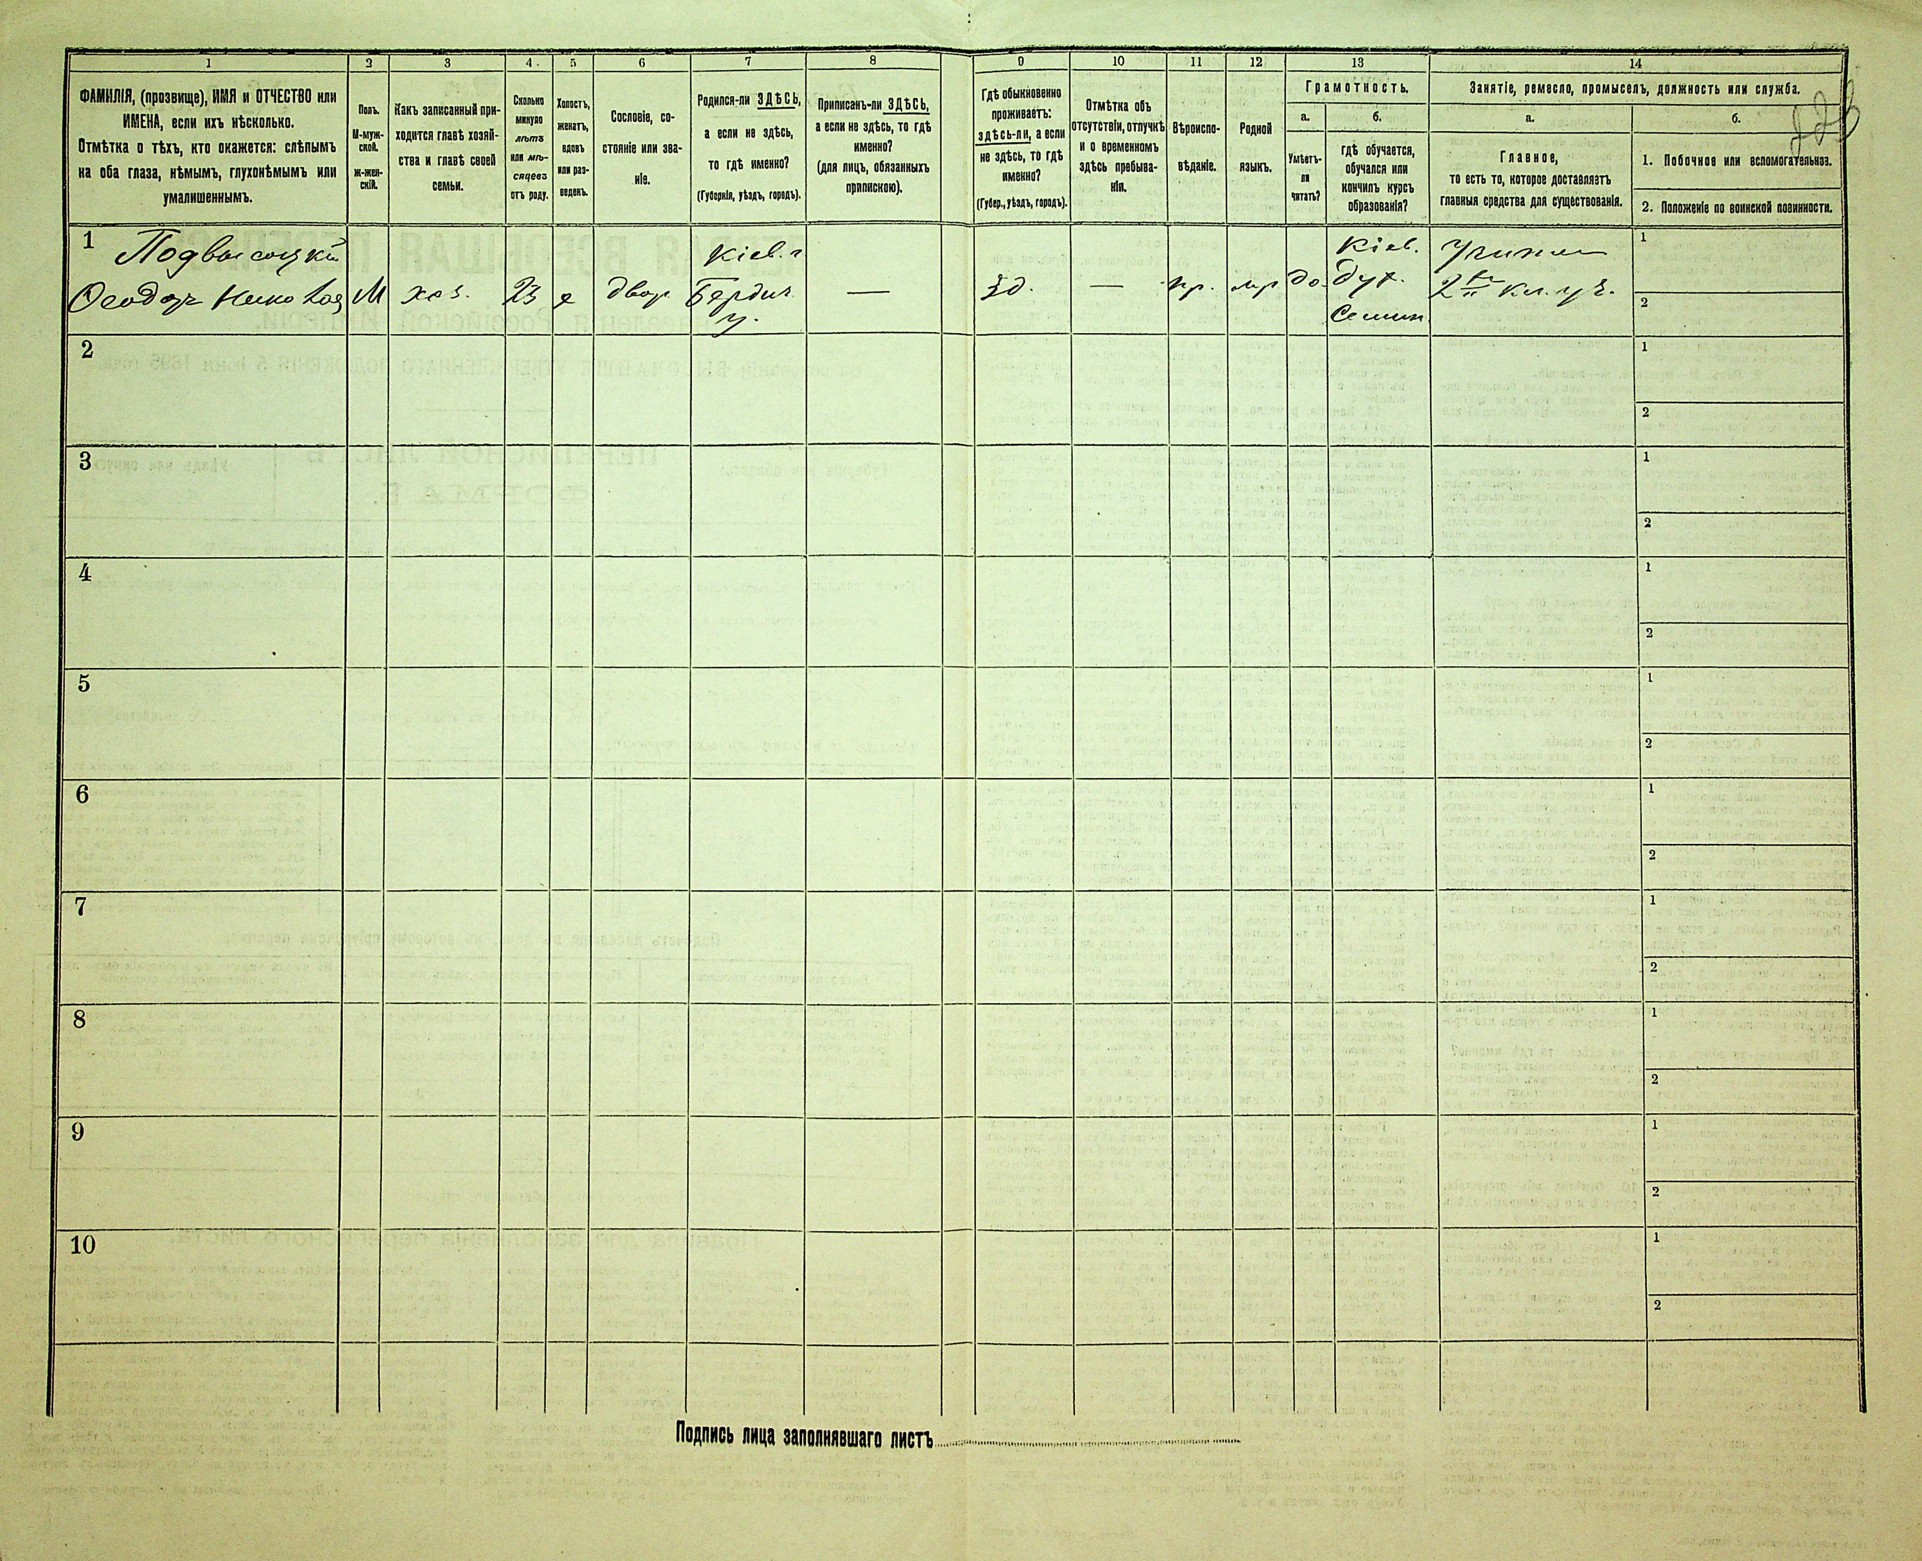 1 2 3 4 5 6 7 8 9 10 11 12 13 14
ФАМИЛІЯ, (прозвище), ИМЯ и ОТЧЕСТВО или
ИМЕНА, если ихъ нѣсколько.
Отмѣтка о тѣхъ, кто окажется: слѣпымъ
на оба глаза, нѣмымъ, глухонѣмымъ или
умалишеннымъ.
Полъ.
М-муж-
ской.
Ж-жен-
скій.
Какъ записанный при-
ходится главѣ хозяй-
ства и главѣ своей
семьи.
Сколько
минуло
лѣтъ
или мѣ-
сяцевъ
отъ роду.
Холостъ,
женатъ,
вдовъ
или раз-
веденъ.
Сословіе, со-
стояніе или зва-
ніе.
Родился-ли ЗДѢСЬ,
а если не здѣсь,
то гдѣ именно?
(Губернія, уѣздъ, городъ).
Приписанъ-ли ЗДѢСЬ,
а если не здѣсь, то гдѣ
именно?
(для лицъ, обязанныхъ
припискою).
Гдѣ обыкновенно
проживаетъ:
здѣсь-ли, а если
не здѣсь, то гдѣ
именно?
(Губер., уѣздъ, городъ).
Отмѣтка объ
отсутствіи, отлучкѣ
и о временномъ
здѣсь пребыва-
ніи.
Вѣроиспо-
вѣданіе.
Родной
языкъ.
Грамотность.
а.
Умѣетъ-
ли
читать?
б.
гдѣ обучается,
обучался или
кончилъ курсъ
образованія?
Занятіе, ремесло, промыселъ, должность или служба.
а.
Главное,
то есть то, которое доставляетъ
главныя средства для существованія.
б.
1. Побочное или вспомогательное.
2. Положеніе по воинской повинности.
1
Подвысоцкій
М хоз. 23 двор
Кіев. г
Бердич
у.
— зд. — пр.
Кіев.
дух.
Семин.
2 кл. уч.
1
2
2
1
2
3
1
2
4
1
2
5
1
2
6
1
2
7
1
2
8
1
2
9
1
2
10
1
2
Подпись лица заполнявшаго листъ